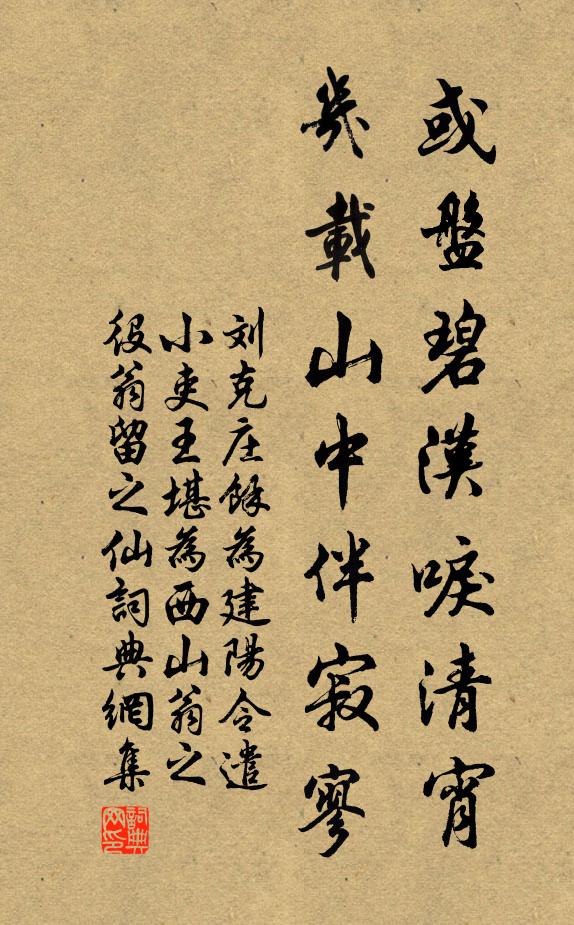 或盤碧漢唳清宵
幾載山中伴寂寥
刘克庄餘為建陽令遣
小吏王堪為西山翁之
役翁留之仙詞典網集
詞典网印